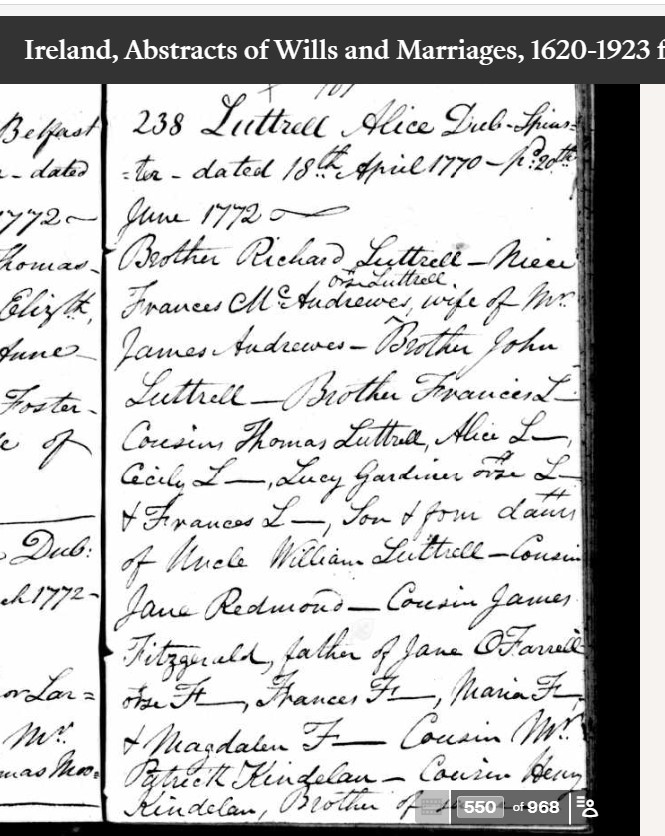 Ireland, Abstracts of Wills and Marriages, 1620-1923 f
Belfast
- dated
1772
Thomas
Elizth,
Anne
Foster
of
Dub:
ch 1772-
or Lar=
Mr.
mas Moo=
238 Luttrell Alice Dub-Spins=
=ter - dated 18th April 1770 - pd. 20th
June 1772
Brother Richard Luttrell - Niece
orse Luttrell.
Frances McAndrewes, wife of Mr.
James Andrewes - Brother John
Luttrell - Brother Frances L-
Cousins Thomas Luttrell, Alice L-,
Cecily L-, Lucy Gardiner orse L-
& Frances L-, Son & four daurs
of Uncle William Luttrell - Cousin
Jane Redmond - Cousin James
Fitzgerald, father of Jane OFarrell
orse F-, Frances F-, Maria F-,
& Magdalen F- Cousin Mr.
Patrick Kindelan - Cousin Henry
Kindelan, Brother of
550 of 968